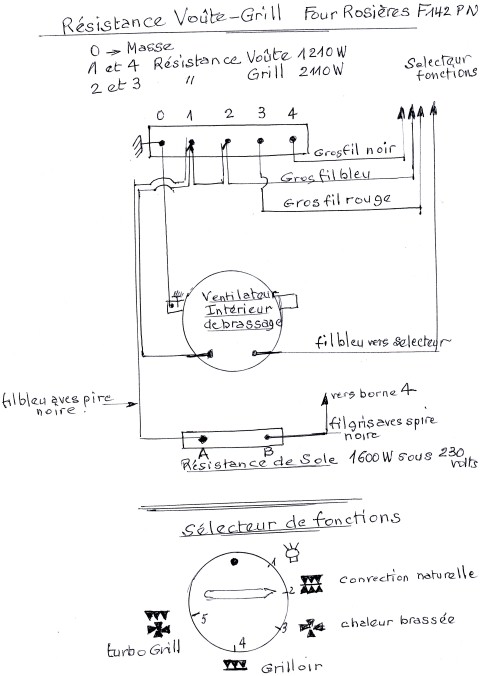 Résistance Voûte-Grill Four Rosières F142 PN
0 → Masse
1 et 4 Résistance Voûte 1210W
2 et 3 " Grill 2110W
Selecteur
fonctions
0 1 2 3 4
Gros fil noir
Gros fil bleu
Gros fil rouge
Ventilateur
Intérieur
de brassage
fil bleu vers sélecteur
fil bleu aves pire
noire
vers borne 4
fil gris aves spire
noire
A B
Résistance de Sole 1600W sous 230
volts
Sélecteur de fonctions
1
2 convection naturelle
3 chaleur brassée
4 Grilloir
5
turbo Grill